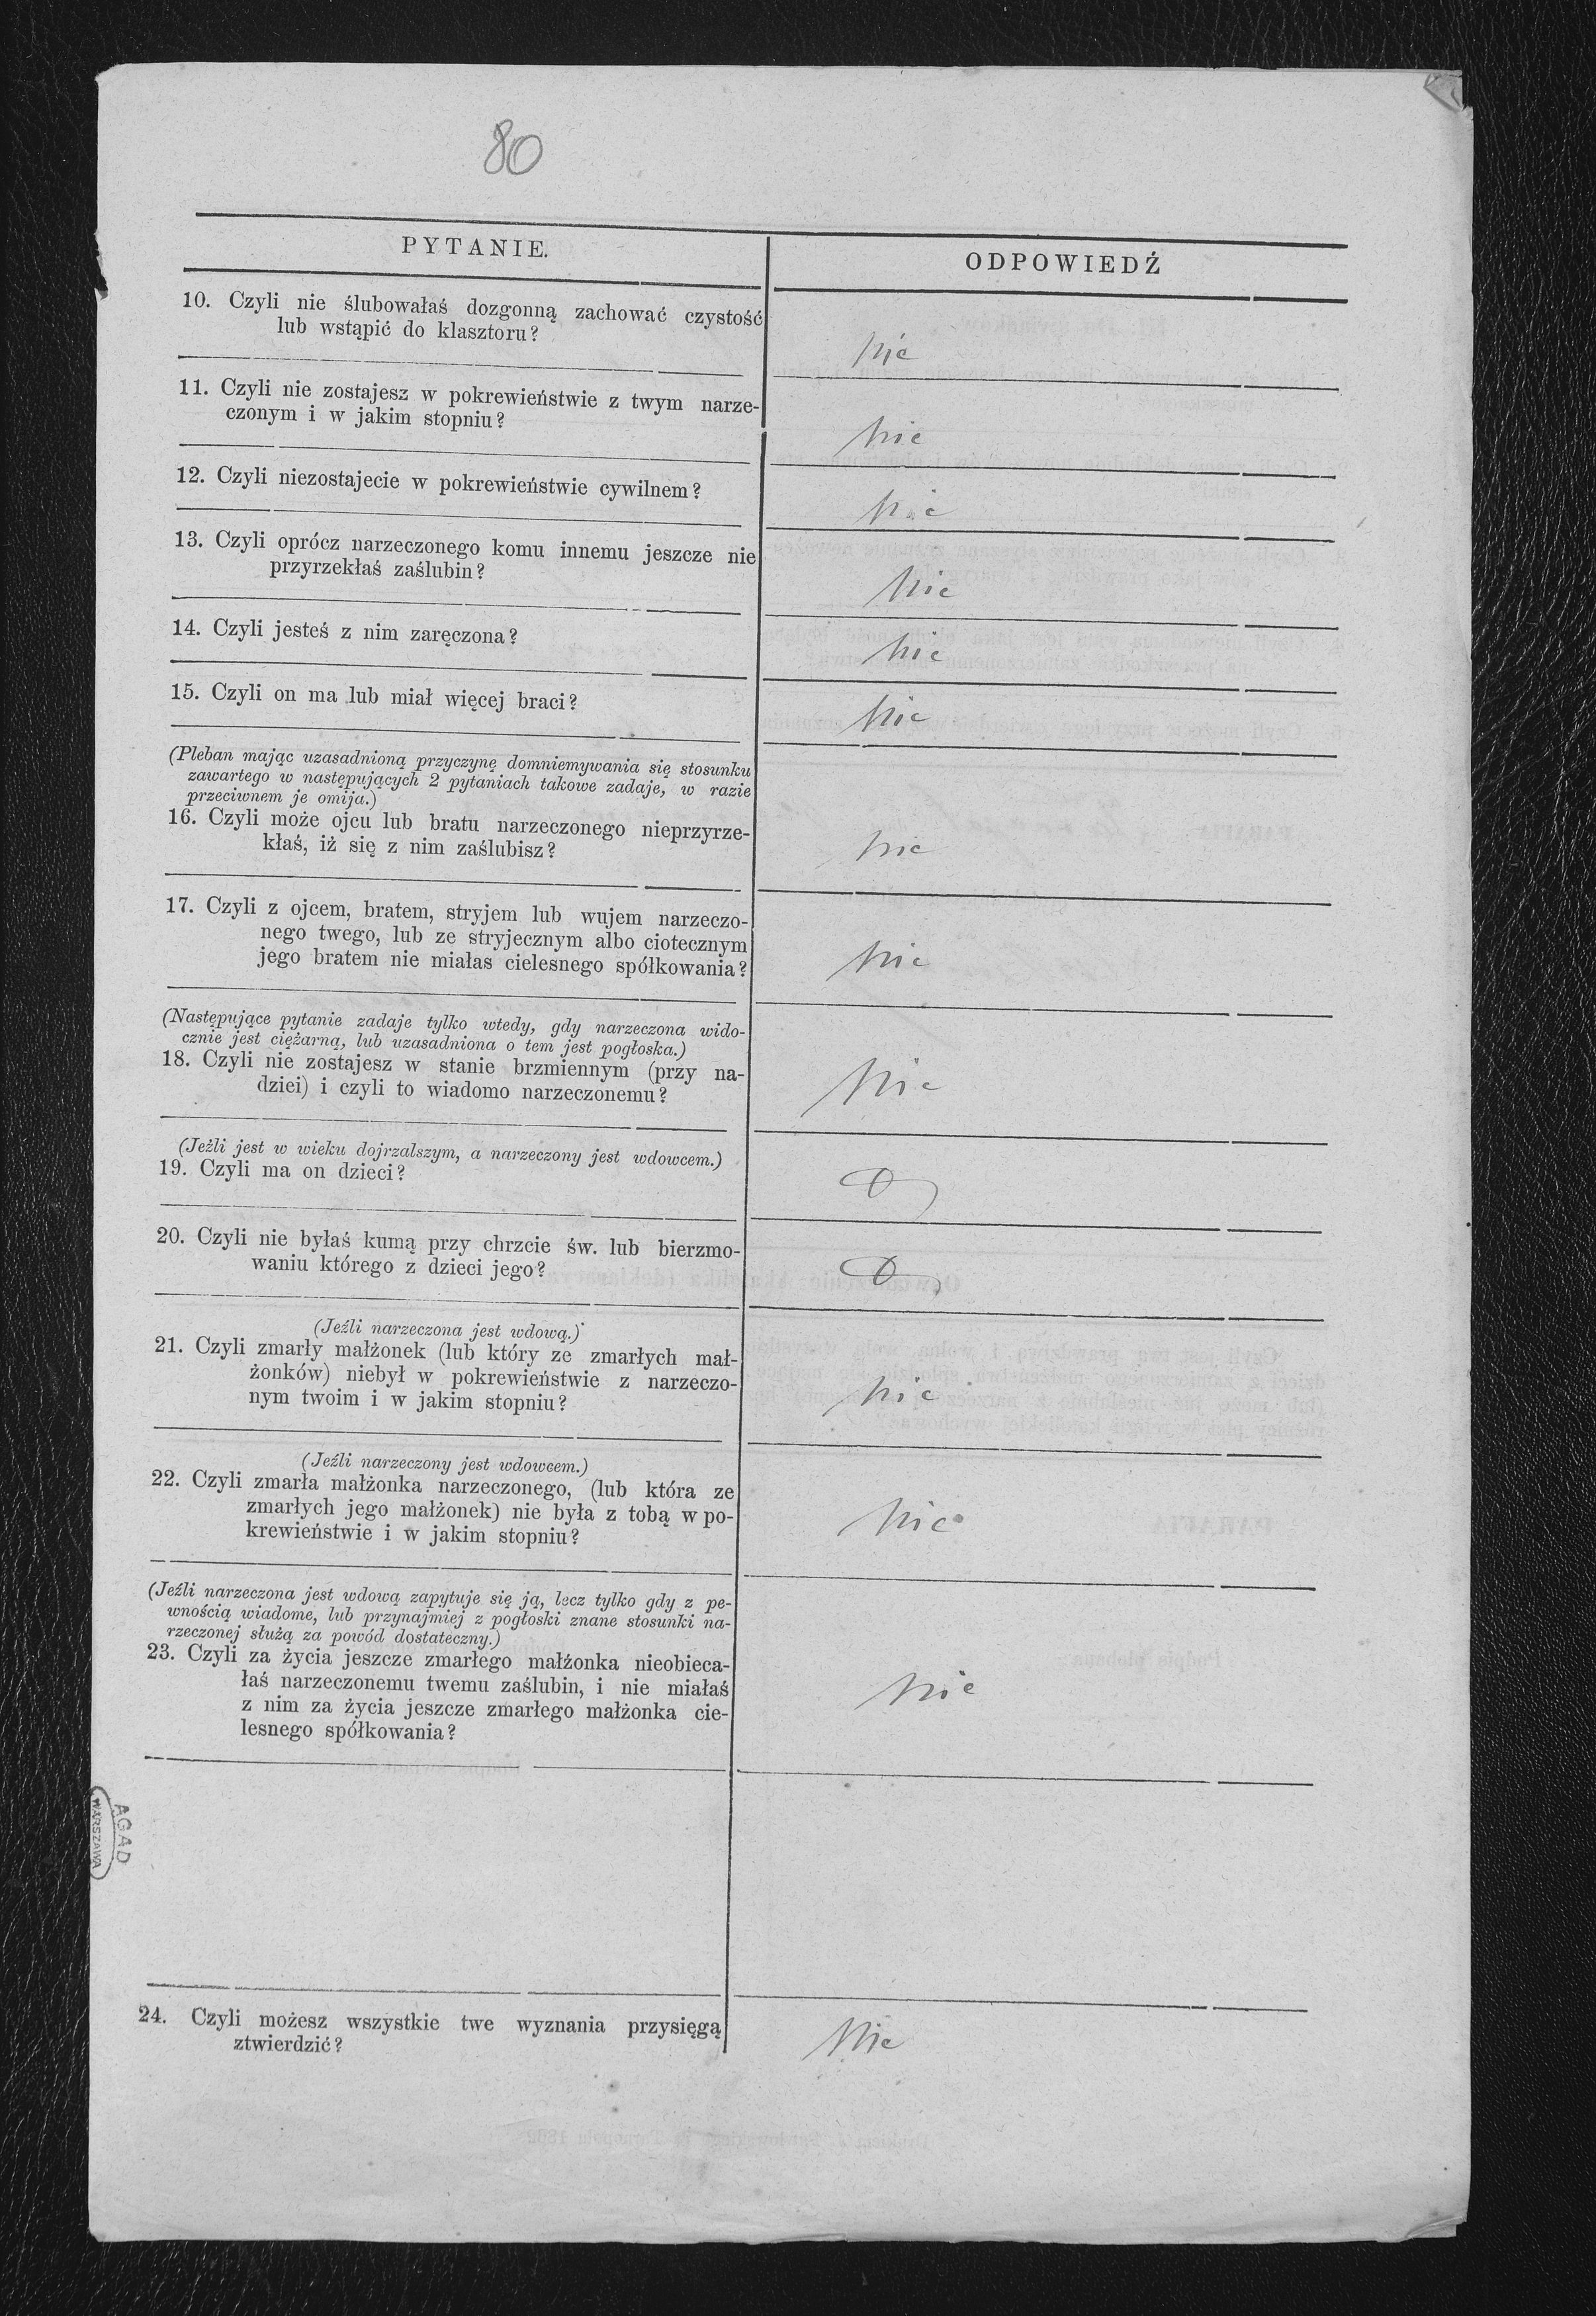 80
PYTANIE.
ODPOWIEDŹ
10. Czyli nie ślubowałaś dozgonną zachować czystość
lub wstąpić do klasztoru?
nie
11. Czyli nie zostajesz w pokrewieństwie z twym narze-
czonym i w jakim stopniu?
nie
12. Czyli niezostajecie w pokrewieństwie cywilnem?
nie
13. Czyli oprócz narzeczonego komu innemu jeszcze nie
przyrzekłaś zaślubin?
nie
14. Czyli jesteś z nim zaręczona?
nie
15. Czyli on ma lub miał więcej braci?
nie
(Pleban mając uzasadnioną przyczynę domniemywania się stosunku
zawartego w następujących 2 pytaniach takowe zadaje, w razie
przeciwnem je omija.)
16. Czyli może ojcu lub bratu narzeczonego nieprzyrze-
kłaś, iż się z nim zaślubisz?
nie
17. Czyli z ojcem, bratem, stryjem lub wujem narzeczo-
nego twego, lub ze stryjecznym albo ciotecznym
jego bratem nie miałas cielesnego spółkowania?
nie
(Następujące pytanie zadaje tylko wtedy, gdy narzeczona wido-
cznie jest ciężarną, lub uzasadniona o tem jest pogłoska.)
18. Czyli nie zostajesz w stanie brzmiennym (przy na-
dziei) i czyli to wiadomo narzeczonemu?
nie
(Jeżli jest w wieku dojrzalszym, a narzeczony jest wdowcem.)
19. Czyli ma on dzieci?
20. Czyli nie byłaś kumą przy chrzcie św. lub bierzmo-
waniu którego z dzieci jego?
(Jeźli narzeczona jest wdową.)
21. Czyli zmarły małżonek (lub który ze zmarłych mał-
żonków) niebył w pokrewieństwie z narzeczo-
nym twoim i w jakim stopniu?
nie
(Jeźli narzeczony jest wdowcem.)
22. Czyli zmarła małżonka narzeczonego, (lub która ze
zmarłych jego małżonek) nie była z tobą w po-
krewieństwie i w jakim stopniu?
nie
(Jeźli narzeczona jest wdową zapytuje się ją, lecz tylko gdy z pe-
wnością wiadome, lub przynajmiej z pogłoski znane stosunki na-
rzeczonej służą za powód dostateczny.)
23. Czyli za życia jeszcze zmarłego małźonka nieobieca-
łaś narzeczonemu twemu zaślubin, i nie miałaś
z nim za życia jeszcze zmarłego małżonka cie-
lesnego spółkowania?
nie
AGAD
WARSZAWA
24. Czyli możesz wszystkie twe wyznania przysięgą
ztwierdzić?
nie